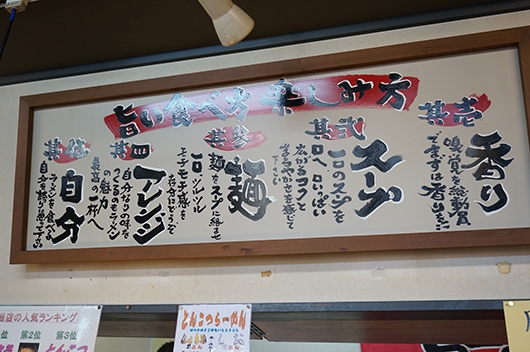 旨い食べ方 楽しみ方
其壱
香り
嗅覚を総動員
でまずは香りを!!
其弐
スープ
一口のスープを
口へ 口いっぱい
広がるコクと
まろやかさを感じて
下さい
其参
麺
麺をスープに絡ませ
一口、ツルツル
モチモチ感を
存分にどうぞ
其四
アレンジ
自分なりの味を
つくるのもラーメン
の魅力
最高の一杯へ
其伍
自分
ラーメンを食べる
自分を誇りに思って下さい
当店の人気ランキング
位 第2位 第3位
とんこつらーめん